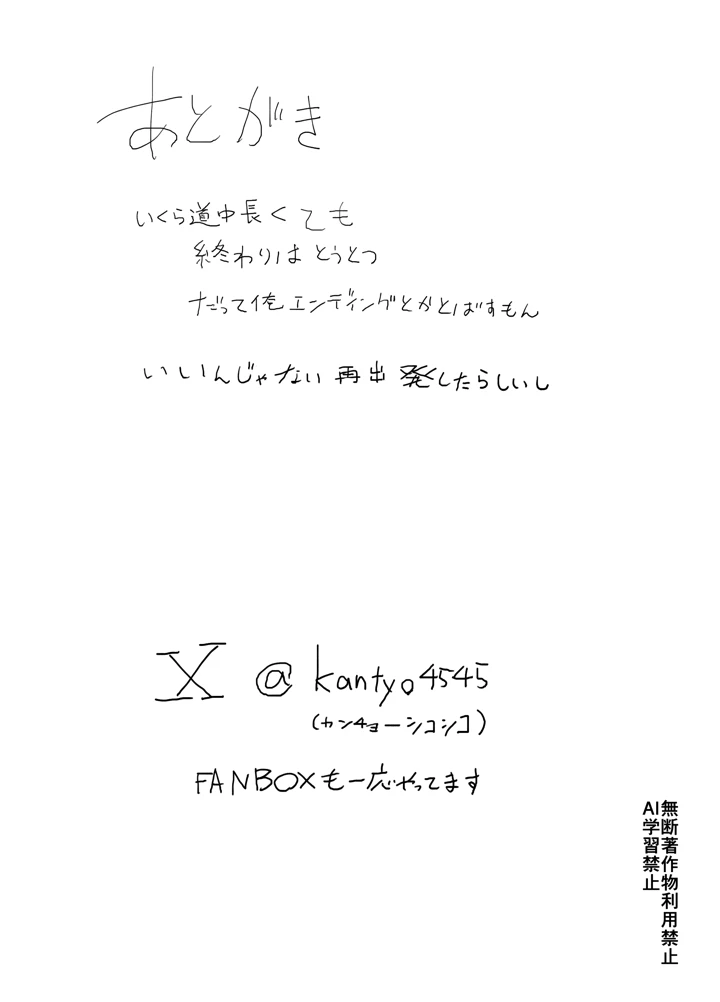 あとがき
いくら道中長くても
終わりはとうとつ
だって俺エンディングとかとばすもん
いいんじゃない再出発したらしいし
X @kantyo4545
(カンチョーシコシコ)
FANBOXも一応やってます
無断著作物利用禁止
AI学習禁止